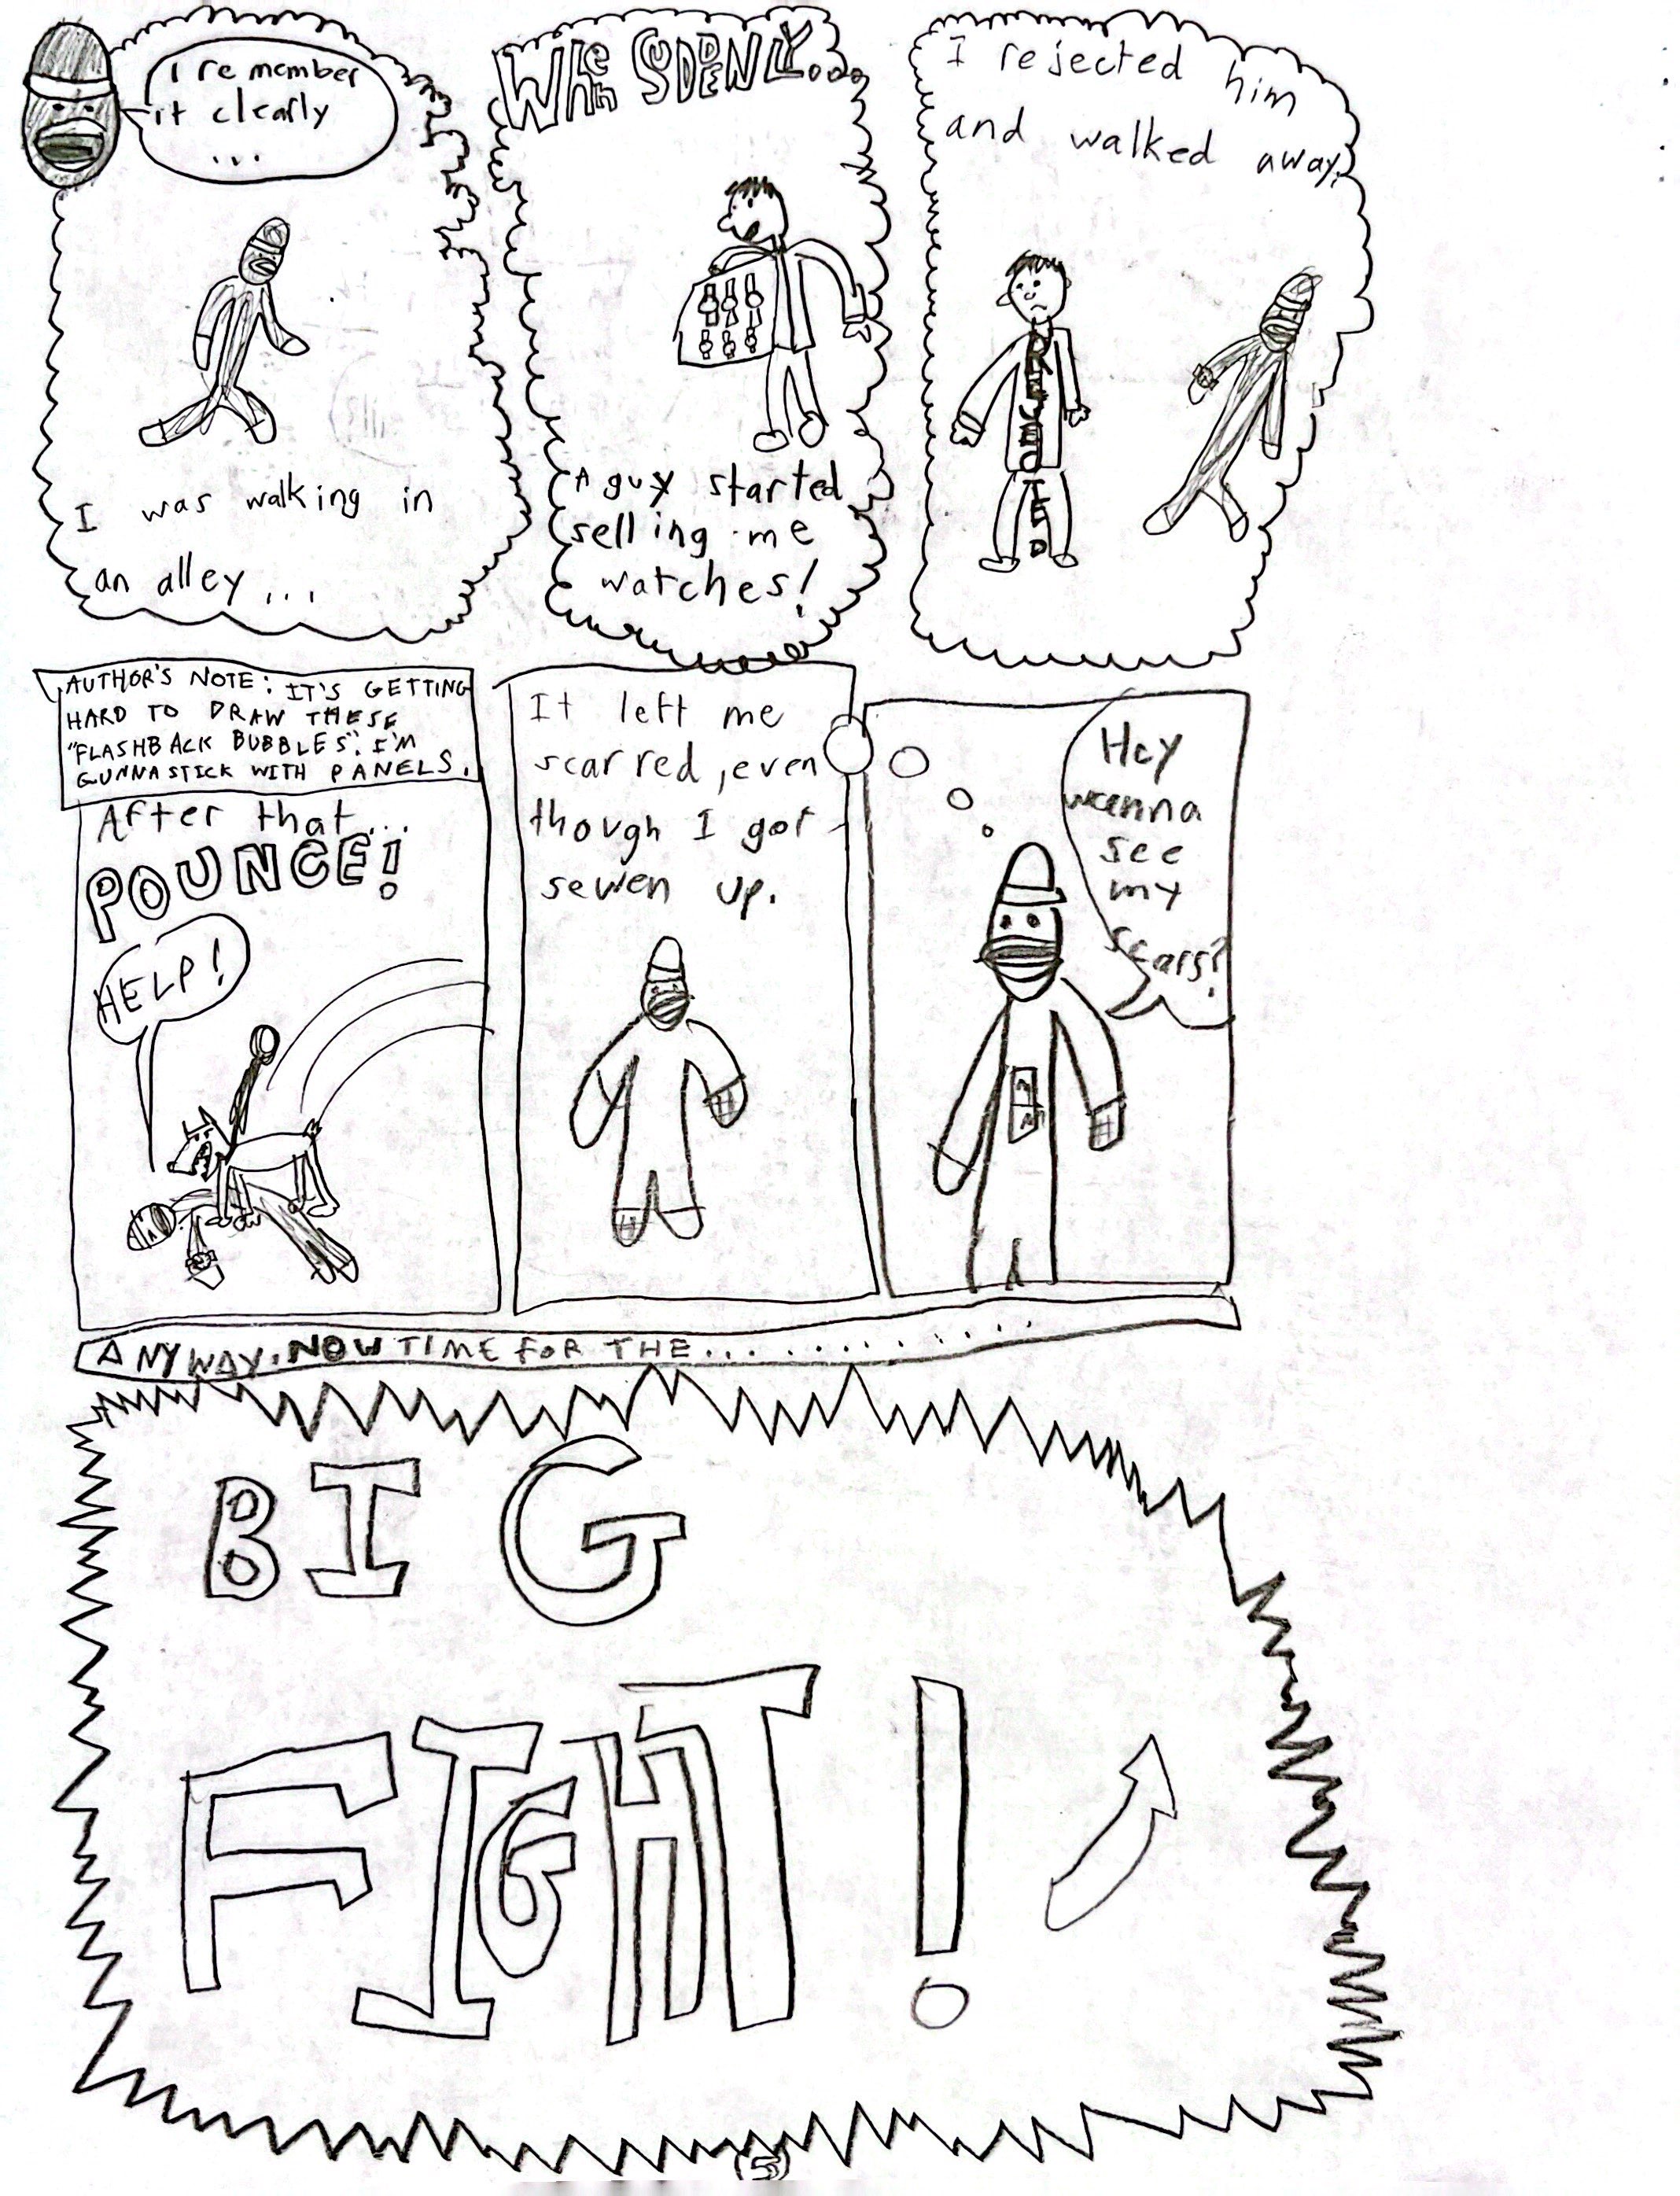 I remember
it clearly
...
I was walking in
an alley...
WHen SUDDENLY....
A guy started
selling me
watches!
I rejected him
and walked away.
REJECTED
AUTHOR'S NOTE: IT'S GETTING
HARD TO DRAW THESE
"FLASHBACK BUBBLES". I'M
GUNNA STICK WITH PANELS.
After that...
POUNCE!
HELP!
It left me
scarred, even
though I got
sewen up.
Hey
wanna
see
my
scars?
ANYWAY, NOW TIME FOR THE............
BIG
FIGHT!
(5)